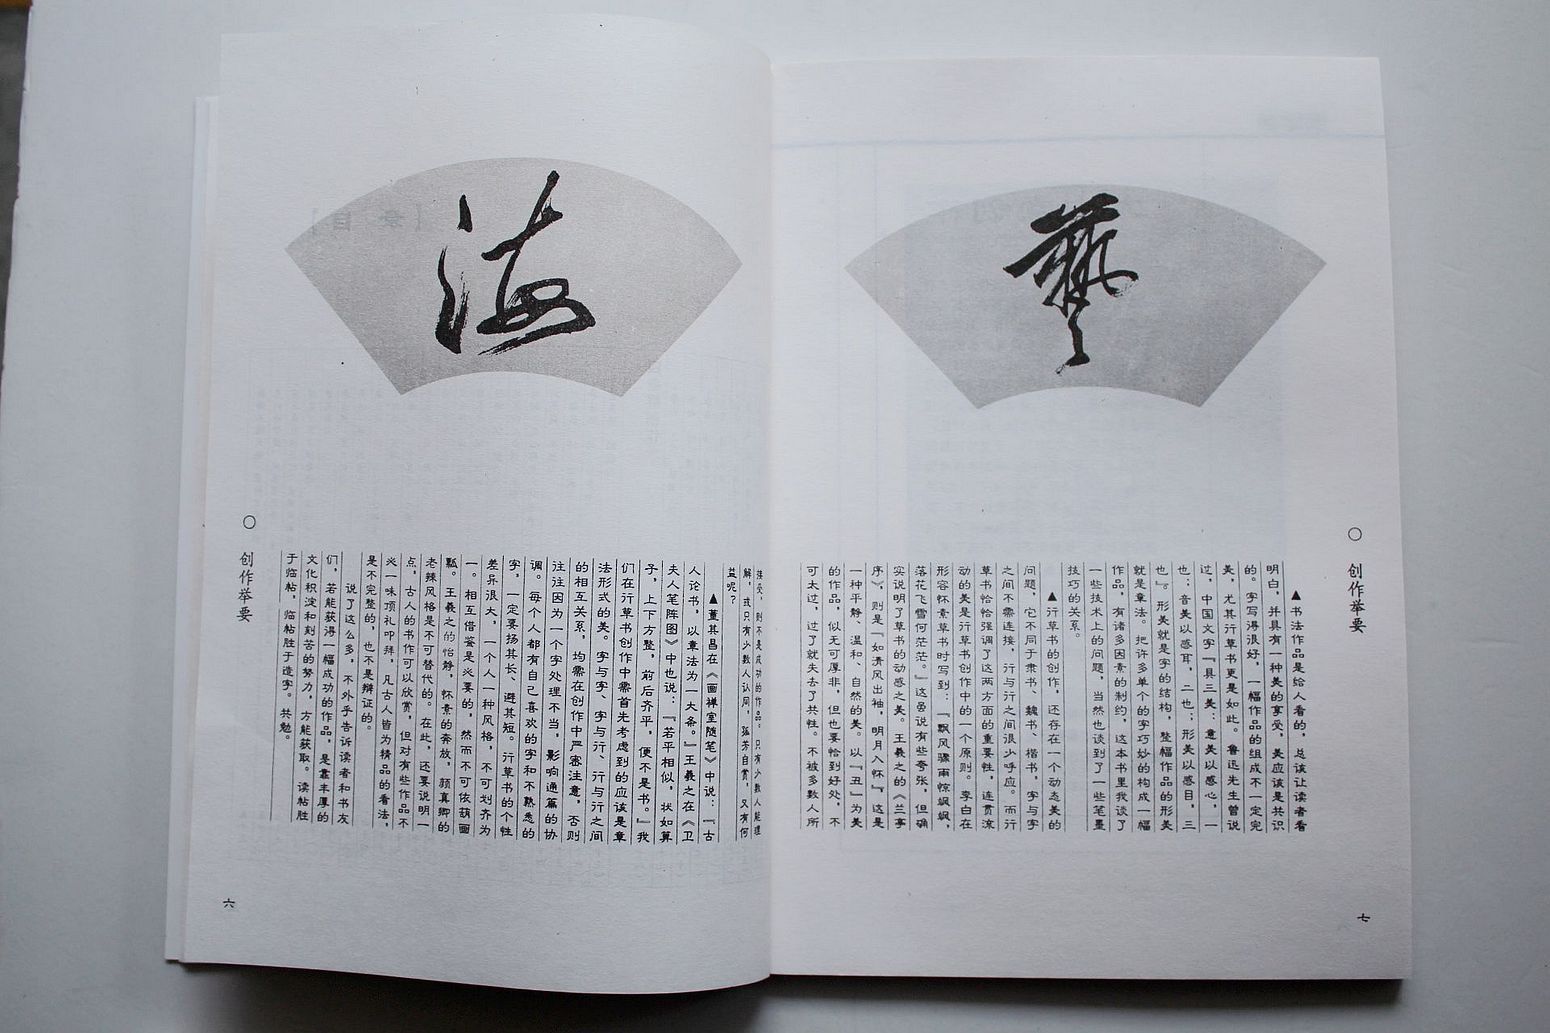 藝
○ 创作举要
▲书法作品是给人看的，总该让读者看
明白，并具有一种美的享受，美应该是共识
的。字写得很好，一幅作品的组成不一定完
美，尤其行草书更是如此。鲁迅先生曾说
过，中国文字『具三美：意美以感心，一
也；音美以感耳，二也；形美以感目，三
也』。形美就是字的结构，整幅作品的形美
就是章法。把许多单个的字巧妙的构成一幅
作品，有诸多因素的制约，这本书里我谈了
一些技术上的问题，当然也谈到了一些笔墨
技巧的关系。
▲行草书的创作，还存在一个动态美的
问题，它不同于隶书、魏书、楷书，字与字
之间不需连接，行与行之间很少呼应。而行
草书恰恰强调了这两方面的重要性，连贯流
动的美是行草书创作中的一个原则。李白在
形容怀素草书时写到：『飘风骤雨惊飒飒，
落花飞雪何茫茫。』这虽说有些夸张，但确
实说明了草书的动感之美。王羲之的《兰亭
序》，则是『如清风出袖，明月入怀』，这是
一种平静、温和、自然的美。以『丑』为美
的作品，似无可厚非，但也要恰到好处，不
可太过，过了就失去了共性。不被多数人所
七
海
接受，则不是成功的作品。只有少数人能理
解，或只有少数人认同，孤芳自赏，又有何
益呢？
▲董其昌在《画禅室随笔》中说：『古
人论书，以章法为一大条。』王羲之在《卫
夫人笔阵图》中也说：『若平相似，状如算
子，上下方整，前后齐平，便不是书。』我
们在行草书创作中需首先考虑到的应该是章
法形式的美。字与字、字与行、行与行之间
的相互关系，均需在创作中严密注意，否则
往往因为一个字处理不当，影响通篇的协
调。每个人都有自己喜欢的字和不熟悉的
字，一定要扬其长、避其短。行草书的个性
差异很大，一个人一种风格，不可划齐为
一。相互借鉴是必要的，然而不可依葫画
瓢。王羲之的怡静，怀素的奔放，颜真卿的
老辣风格是不可替代的。在此，还要说明一
点，古人的书作可以欣赏，但对有些作品不
必一味顶礼叩拜，凡古人皆为精品的看法，
是不完整的，也不是辩证的。
说了这么多，不外乎告诉读者和书友
们，若能获得一幅成功的作品，是靠丰厚的
文化积淀和刻苦的努力，方能获取。读帖胜
于临帖，临帖胜于造字。共勉。
○ 创作举要
六